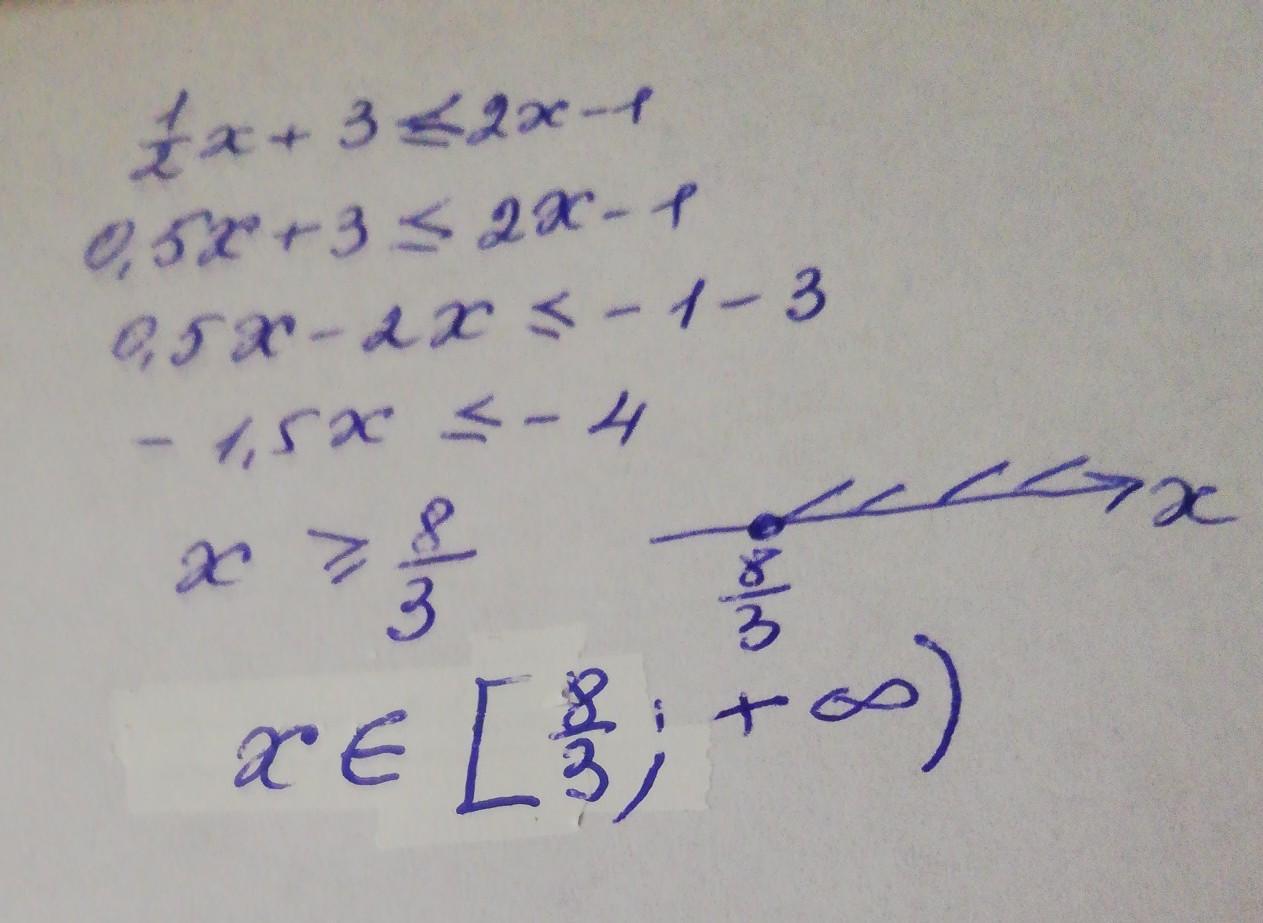 1/2 x + 3 ≤ 2x - 1
0,5x + 3 ≤ 2x - 1
0,5x - 2x ≤ - 1 - 3
- 1,5x ≤ - 4
x ≥ 8/3
x
8/3
x ∈ [8/3; + ∞)